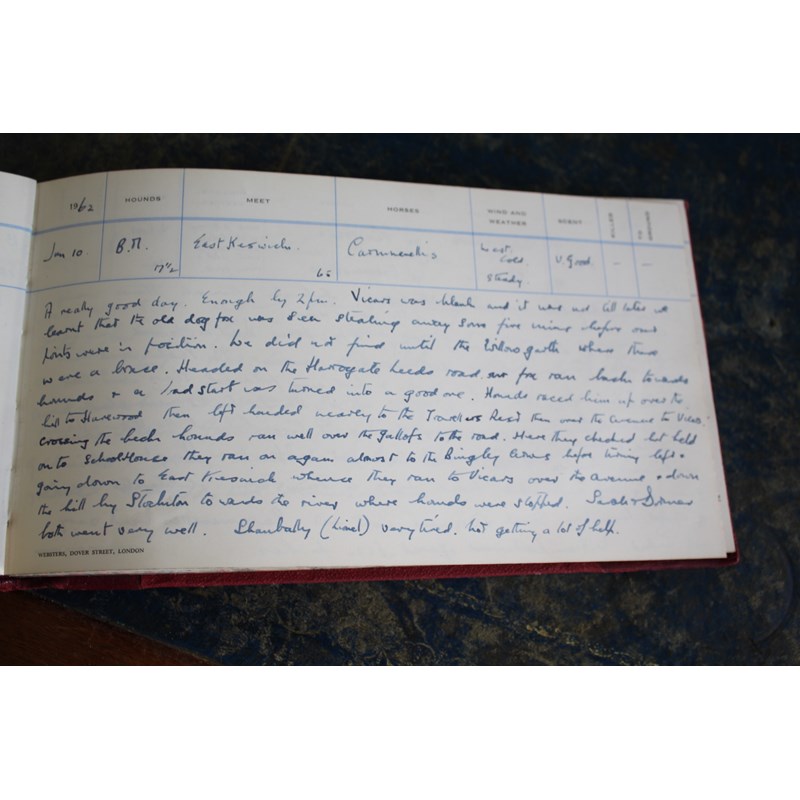 1962 HOUNDS MEET HORSES WIND AND WEATHER SCENT KILLED TO GROUND
Jan 10 B.M. 17½ East Keswick. 65 West. Cold. Steady. V. Good. – –
A really good day. Enough by 2 p.m. Vicars was blank and it was not till later we
learnt that the old dog fox was seen stealing away some five mins before our
points were in position. We did not find until the Willow garth where there
were a brace. Headed on the Harrogate Leeds road our fox ran back towards
hounds & a bad start was turned into a good one. Hounds raced him up over the
hill to Harewood then left handed nearly to the Travellers Rest then over the avenue to Vicars.
Crossing the beck hounds ran well over the gallops to the road. Here they checked but held
on to Schoolhouse they ran on again almost to the Bingley Arms before turning left &
going down to East Keswick whence they ran to Vicars over the avenue & down
the hill by Stockton towards the river where hounds were stopped. Sarah &
both went very well. Shanbally (lines) very tired. Not getting a lot of help.
WEBSTERS, DOVER STREET, LONDON